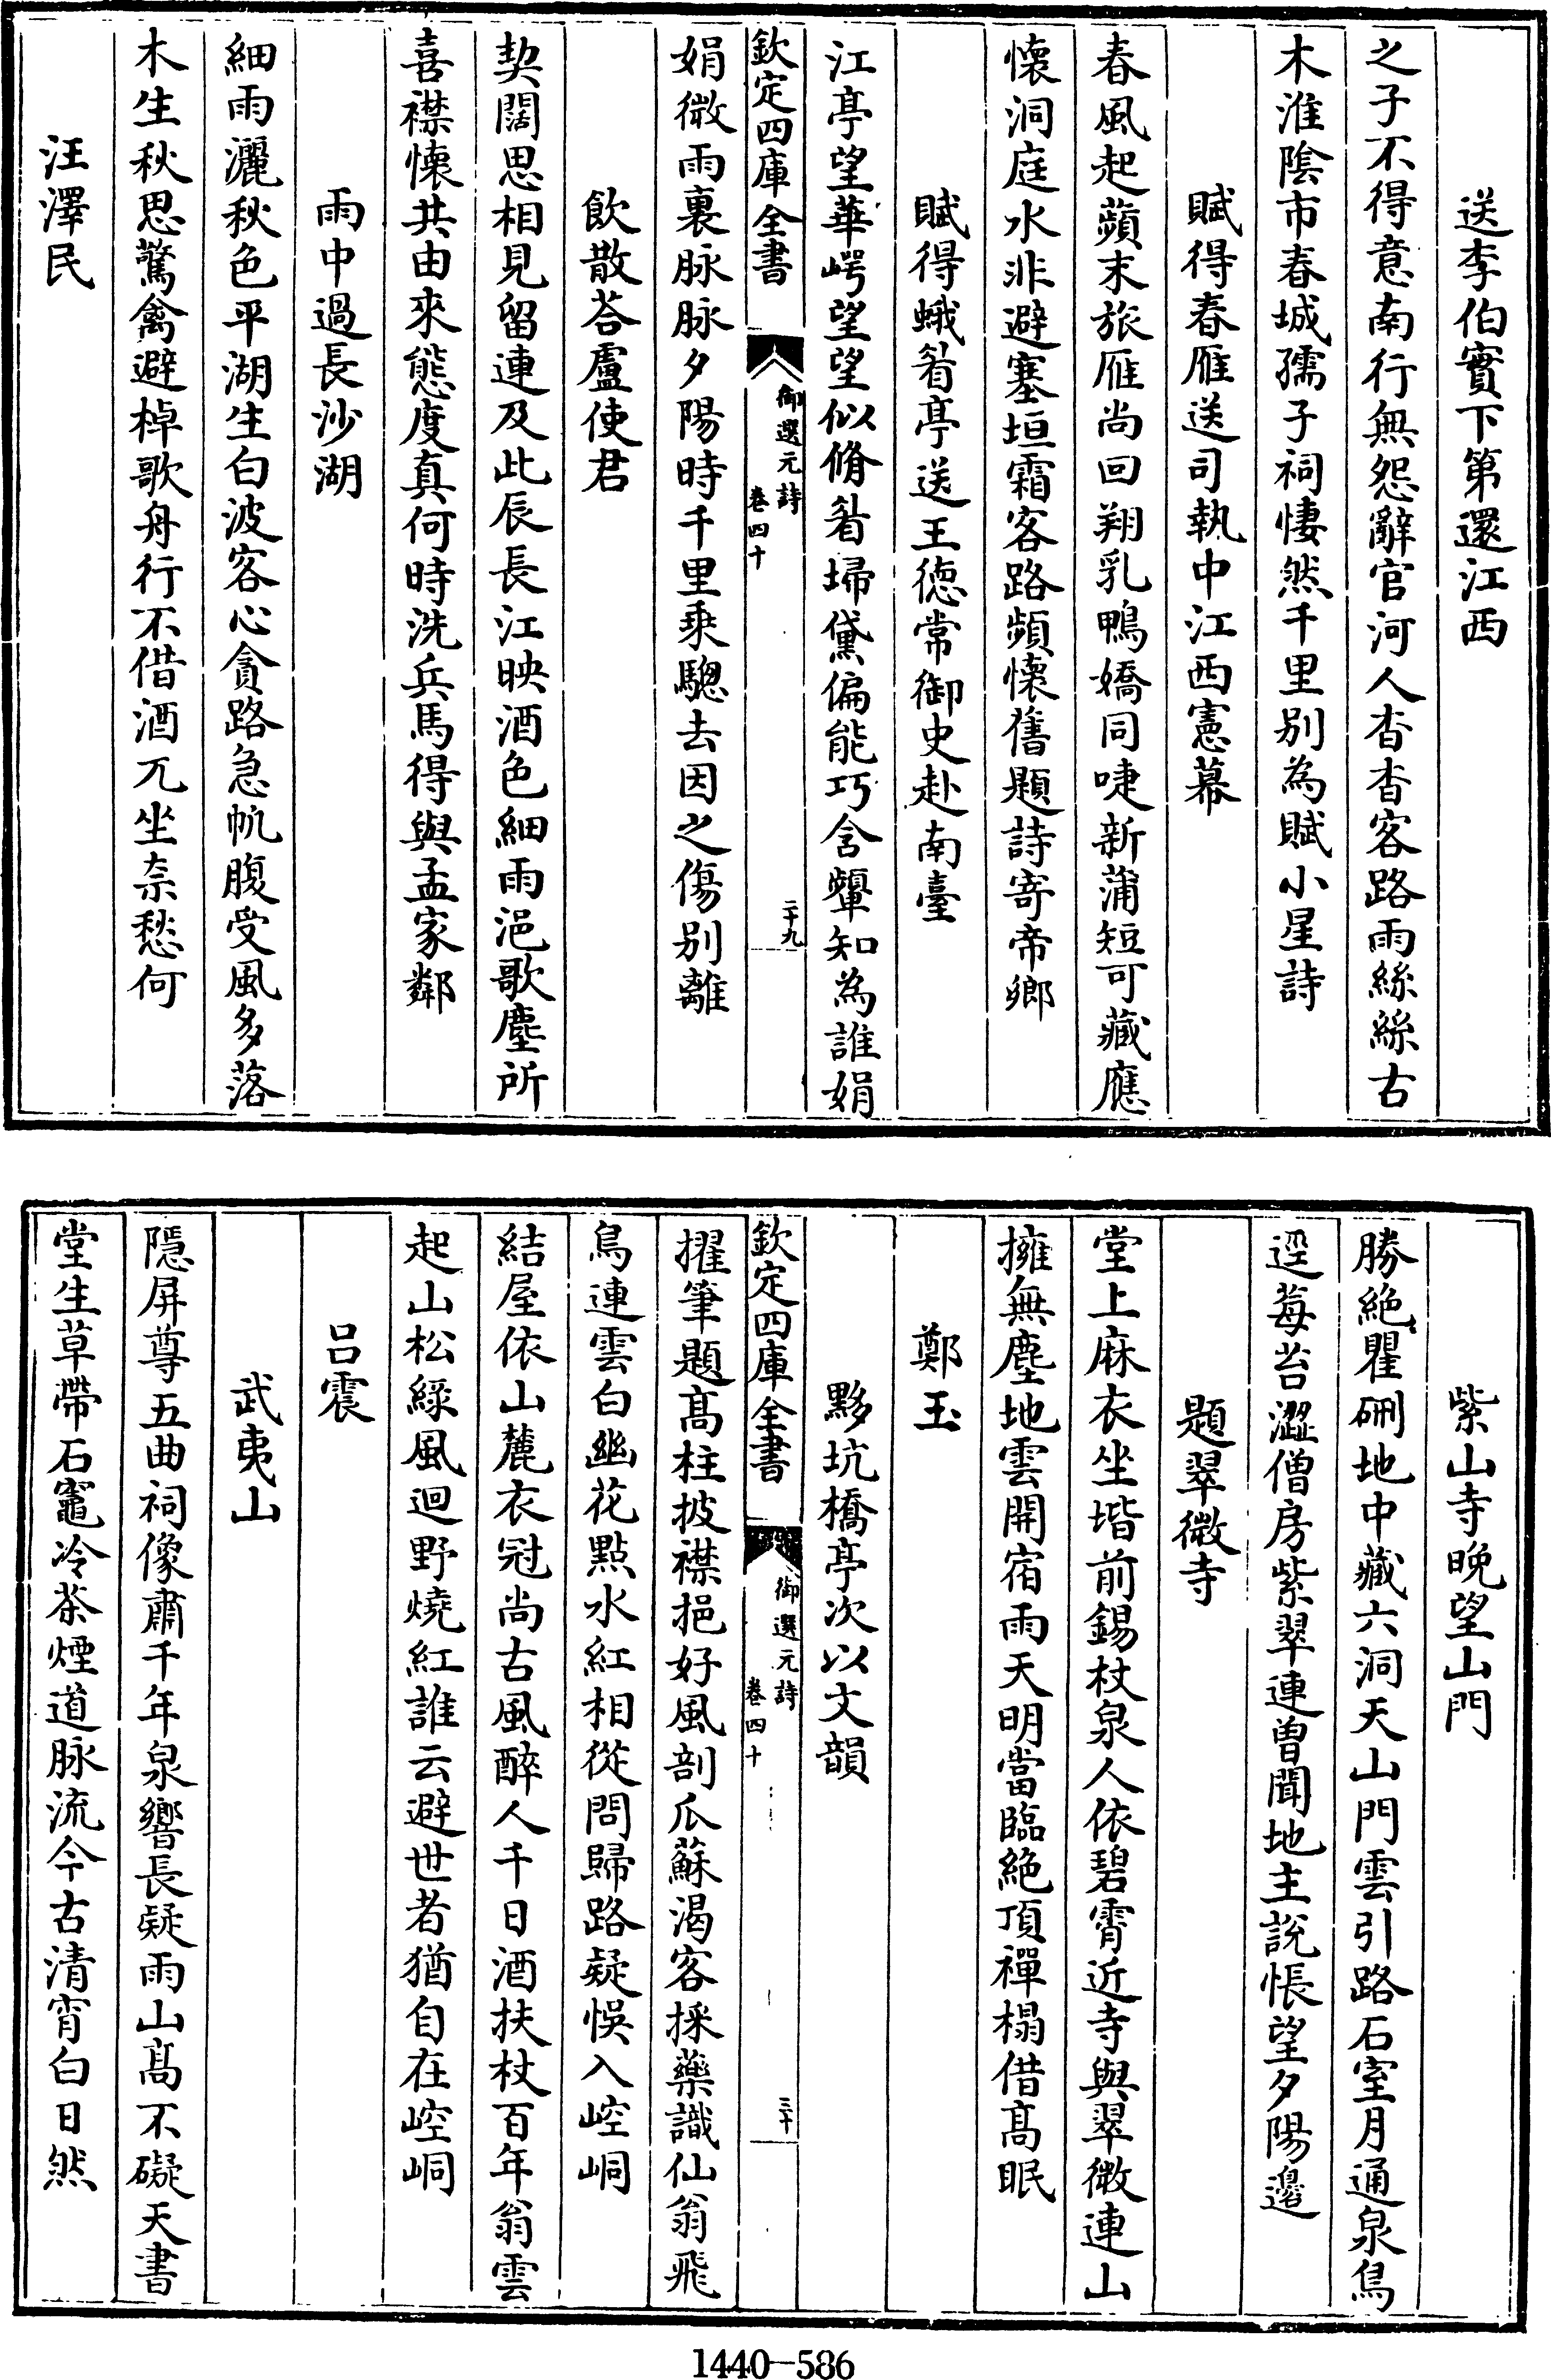 送李伯實下第還江西
之子不得意南行無怨辭官河人杳杳客路雨絲絲古
木淮陰市春城孺子祠悽然千里别為賦小星詩
賦得春雁送司執中江西憲幕
春風起蘋末旅雁尚回翔乳鴨嬌同唼新蒲短可藏應
懷洞庭水非避塞垣霜客路頻懷舊題詩寄帝鄉
賦得蛾眉亭送王德常御史赴南臺
江亭望華㟧望望似脩眉埽黛偏能巧含顰知為誰娟
欽定四庫全書
御選元詩
卷四十
二十九
娟微雨裏脉脉夕陽時千里乗驄去因之傷别離
飲散荅盧使君
契闊思相見留連及此辰長江映酒色細雨浥歌塵所
喜襟懷共由來態度真何時洗兵馬得與孟家鄰
雨中過長沙湖
細雨灑秋色平湖生白波客心貪路急帆腹受風多落
木生秋思驚禽避棹歌舟行不借酒兀坐柰愁何
汪澤民
紫山寺晚望山門
勝絶瞿硎地中藏六洞天山門雲引路石室月通泉鳥
逕莓苔澀僧房紫翠連曽聞地主說悵望夕陽邉
題翠微寺
堂上麻衣坐堦前錫杖泉人依碧霄近寺與翠微連山
擁無塵地雲開宿雨天明當臨絶頂禪榻借髙眠
鄭玉
黟坑橋亭次以文韻
欽定四庫全書
御選元詩
卷四十
三十
擢筆題髙柱披襟挹好風剖瓜蘇渴客採藥識仙翁飛
鳥連雲白幽花點水紅相從問歸路疑悞入崆峒
結屋依山麓衣冠尚古風醉人千日酒扶杖百年翁雲
起山松緑風迴野燒紅誰云避世者猶自在崆峒
吕震
武夷山
隱屏尊五曲祠像肅千年泉響長疑雨山髙不礙天書
堂生草帶石竈冷茶煙道脉流今古清宵白日然
1440—586